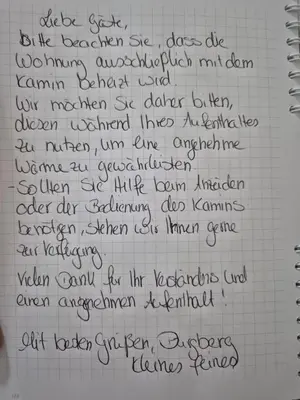 Liebe Gäste,
Bitte beachten Sie, dass die
Wohnung ausschließlich mit dem
Kamin beheizt wird.
Wir möchten Sie daher bitten,
diesen während Ihres Aufenthaltes
zu nutzen, um eine angenehme
Wärme zu gewährleisten.
- Sollten Sie Hilfe beim Anzünden
oder der Bedienung des Kamins
benötigen, stehen wir Ihnen gerne
zur Verfügung.
Vielen Dank für Ihr Verständnis und
einen angenehmen Aufenthalt!
Mit besten Grüßen,
kleines feines